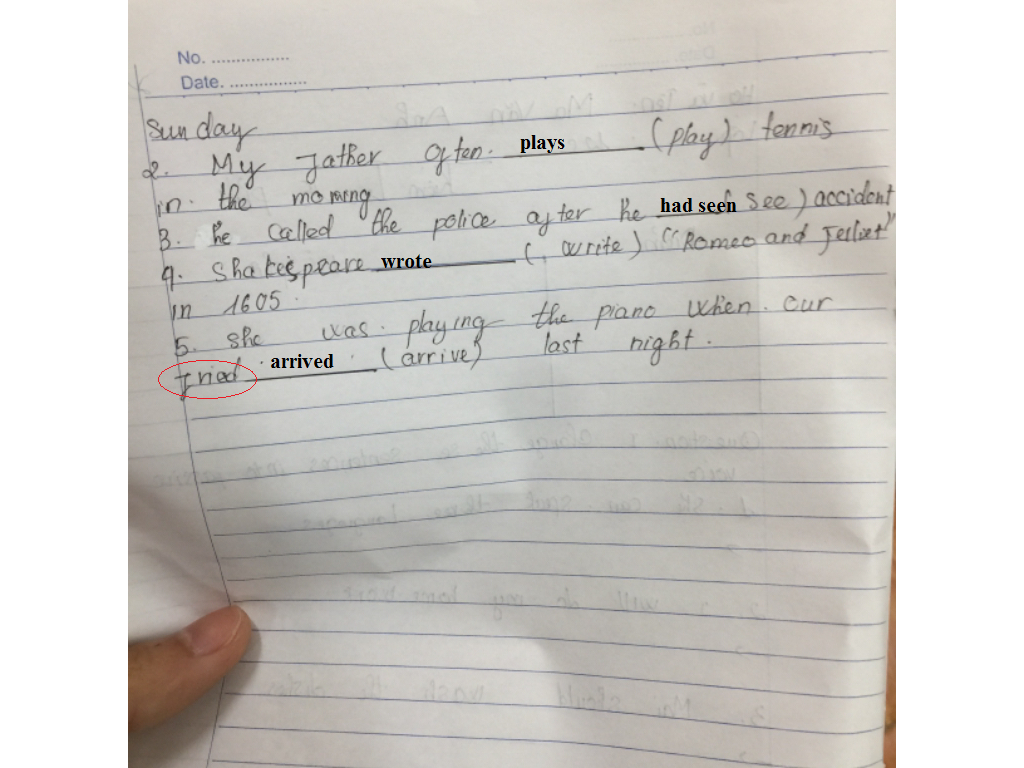 No. ................
Date. ................
Sunday
2. My father often. plays (play) tennis
in the morning
3. he called the police after he had seen see) accident
4. Shakespeare wrote (, write) "Romeo and Jeliet"
in 1605.
5. She was playing the piano when our
fried arrived (arrive) last night.